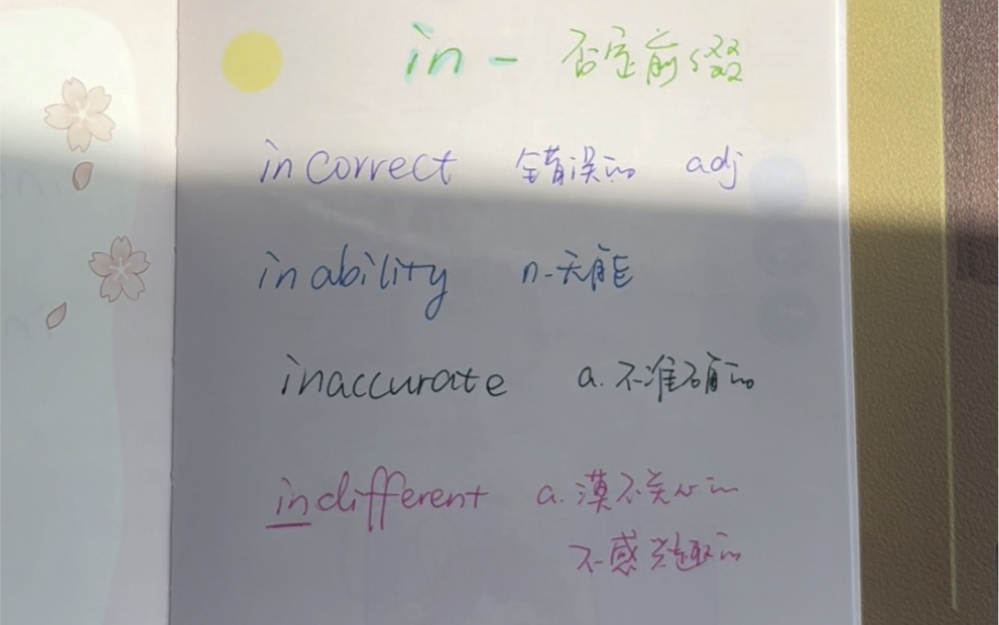 in - 否定前缀
incorrect 错误的 adj
inability n. 无能
inaccurate a. 不准确的
indifferent a. 漠不关心的
不感兴趣的